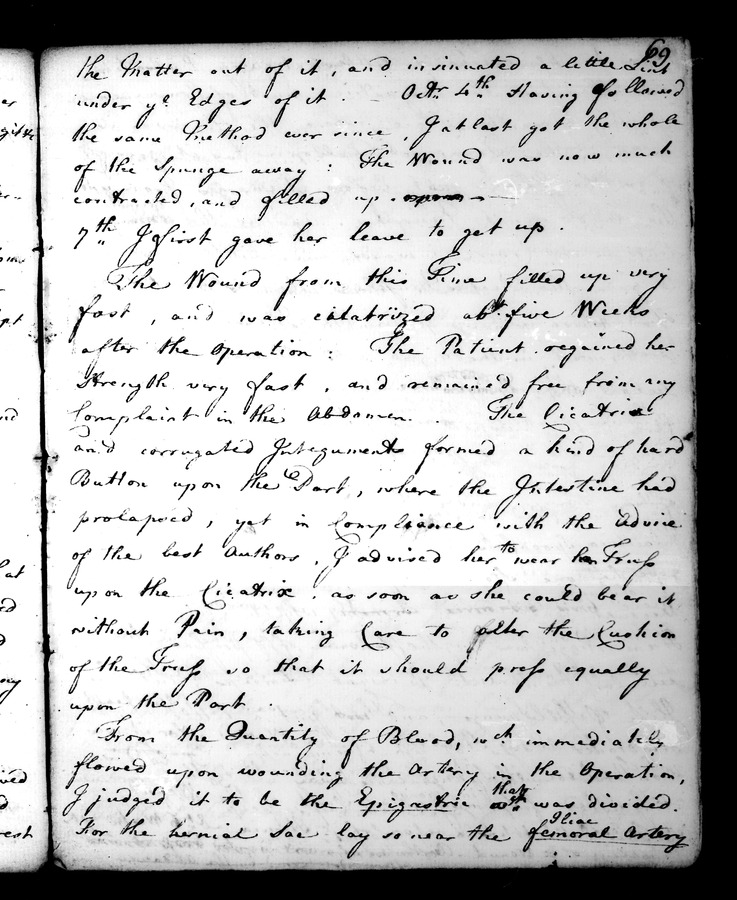 69
the Matter out of it, and insinuated a little Lint
under ye Edges of it. — Octr 4th Having followed
the same Method ever since, I at last got the whole
of the Spunge away: The Wound was now much
contracted, and filled up. —
7th I first gave her leave to get up.
The Wound from this Time filled up very
fast, and was cicatrized abt five Weeks
after the Operation: The Patient regained her
Strength very fast, and remained free from any
Complaint in the Abdomen. The Cicatrix
and corrugated Integuments formed a kind of hard
Button upon the Part, where the Intestine had
prolapsed, yet in Compliance with the Advice
of the best Authors, I advised her to wear her Truss
upon the Cicatrix, as soon as she could bear it
without Pain, taking Care to alter the Cushion
of the Truss so that it should press equally
upon the Part.
From the Quantity of Blood, wch immediately
flowed upon wounding the Artery in the Operation,
I judged it to be the Epigastric that was divided.
For the hernial Sac lay so near the Iliac femoral Artery